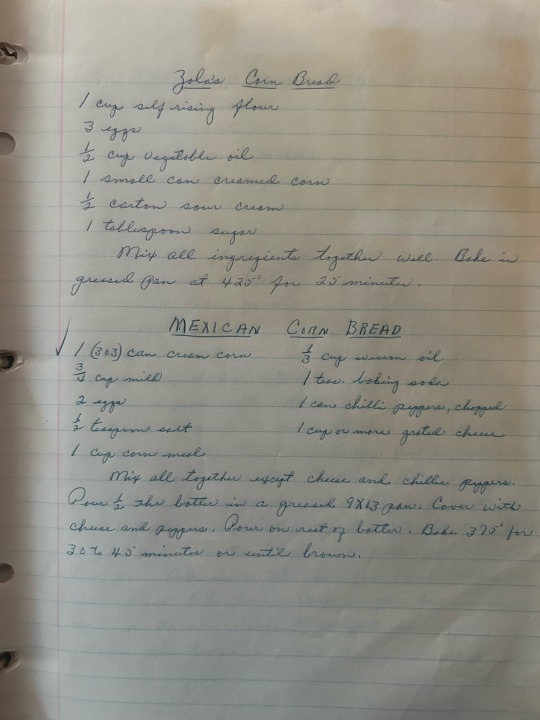 Zola's Corn Bread
1 cup self rising flour
3 eggs
1/2 cup vegetable oil
1 small can creamed corn
1/2 carton sour cream
1 tablespoon sugar
Mix all ingredients together well. Bake in
greased pan at 425° for 25 minutes.
MEXICAN CORN BREAD
✓ 1 (303) can cream corn
3/4 cup milk
2 eggs
1/2 teaspoon salt
1 cup corn meal
1/3 cup wesson oil
1 teas. baking soda
1 can chilli peppers, chopped
1 cup or more grated cheese
Mix all together except cheese and chillie peppers.
Pour 1/2 the batter in a greased 9X13 pan. Cover with
cheese and peppers. Pour on rest of batter. Bake 375° for
30 to 45 minutes or until brown.